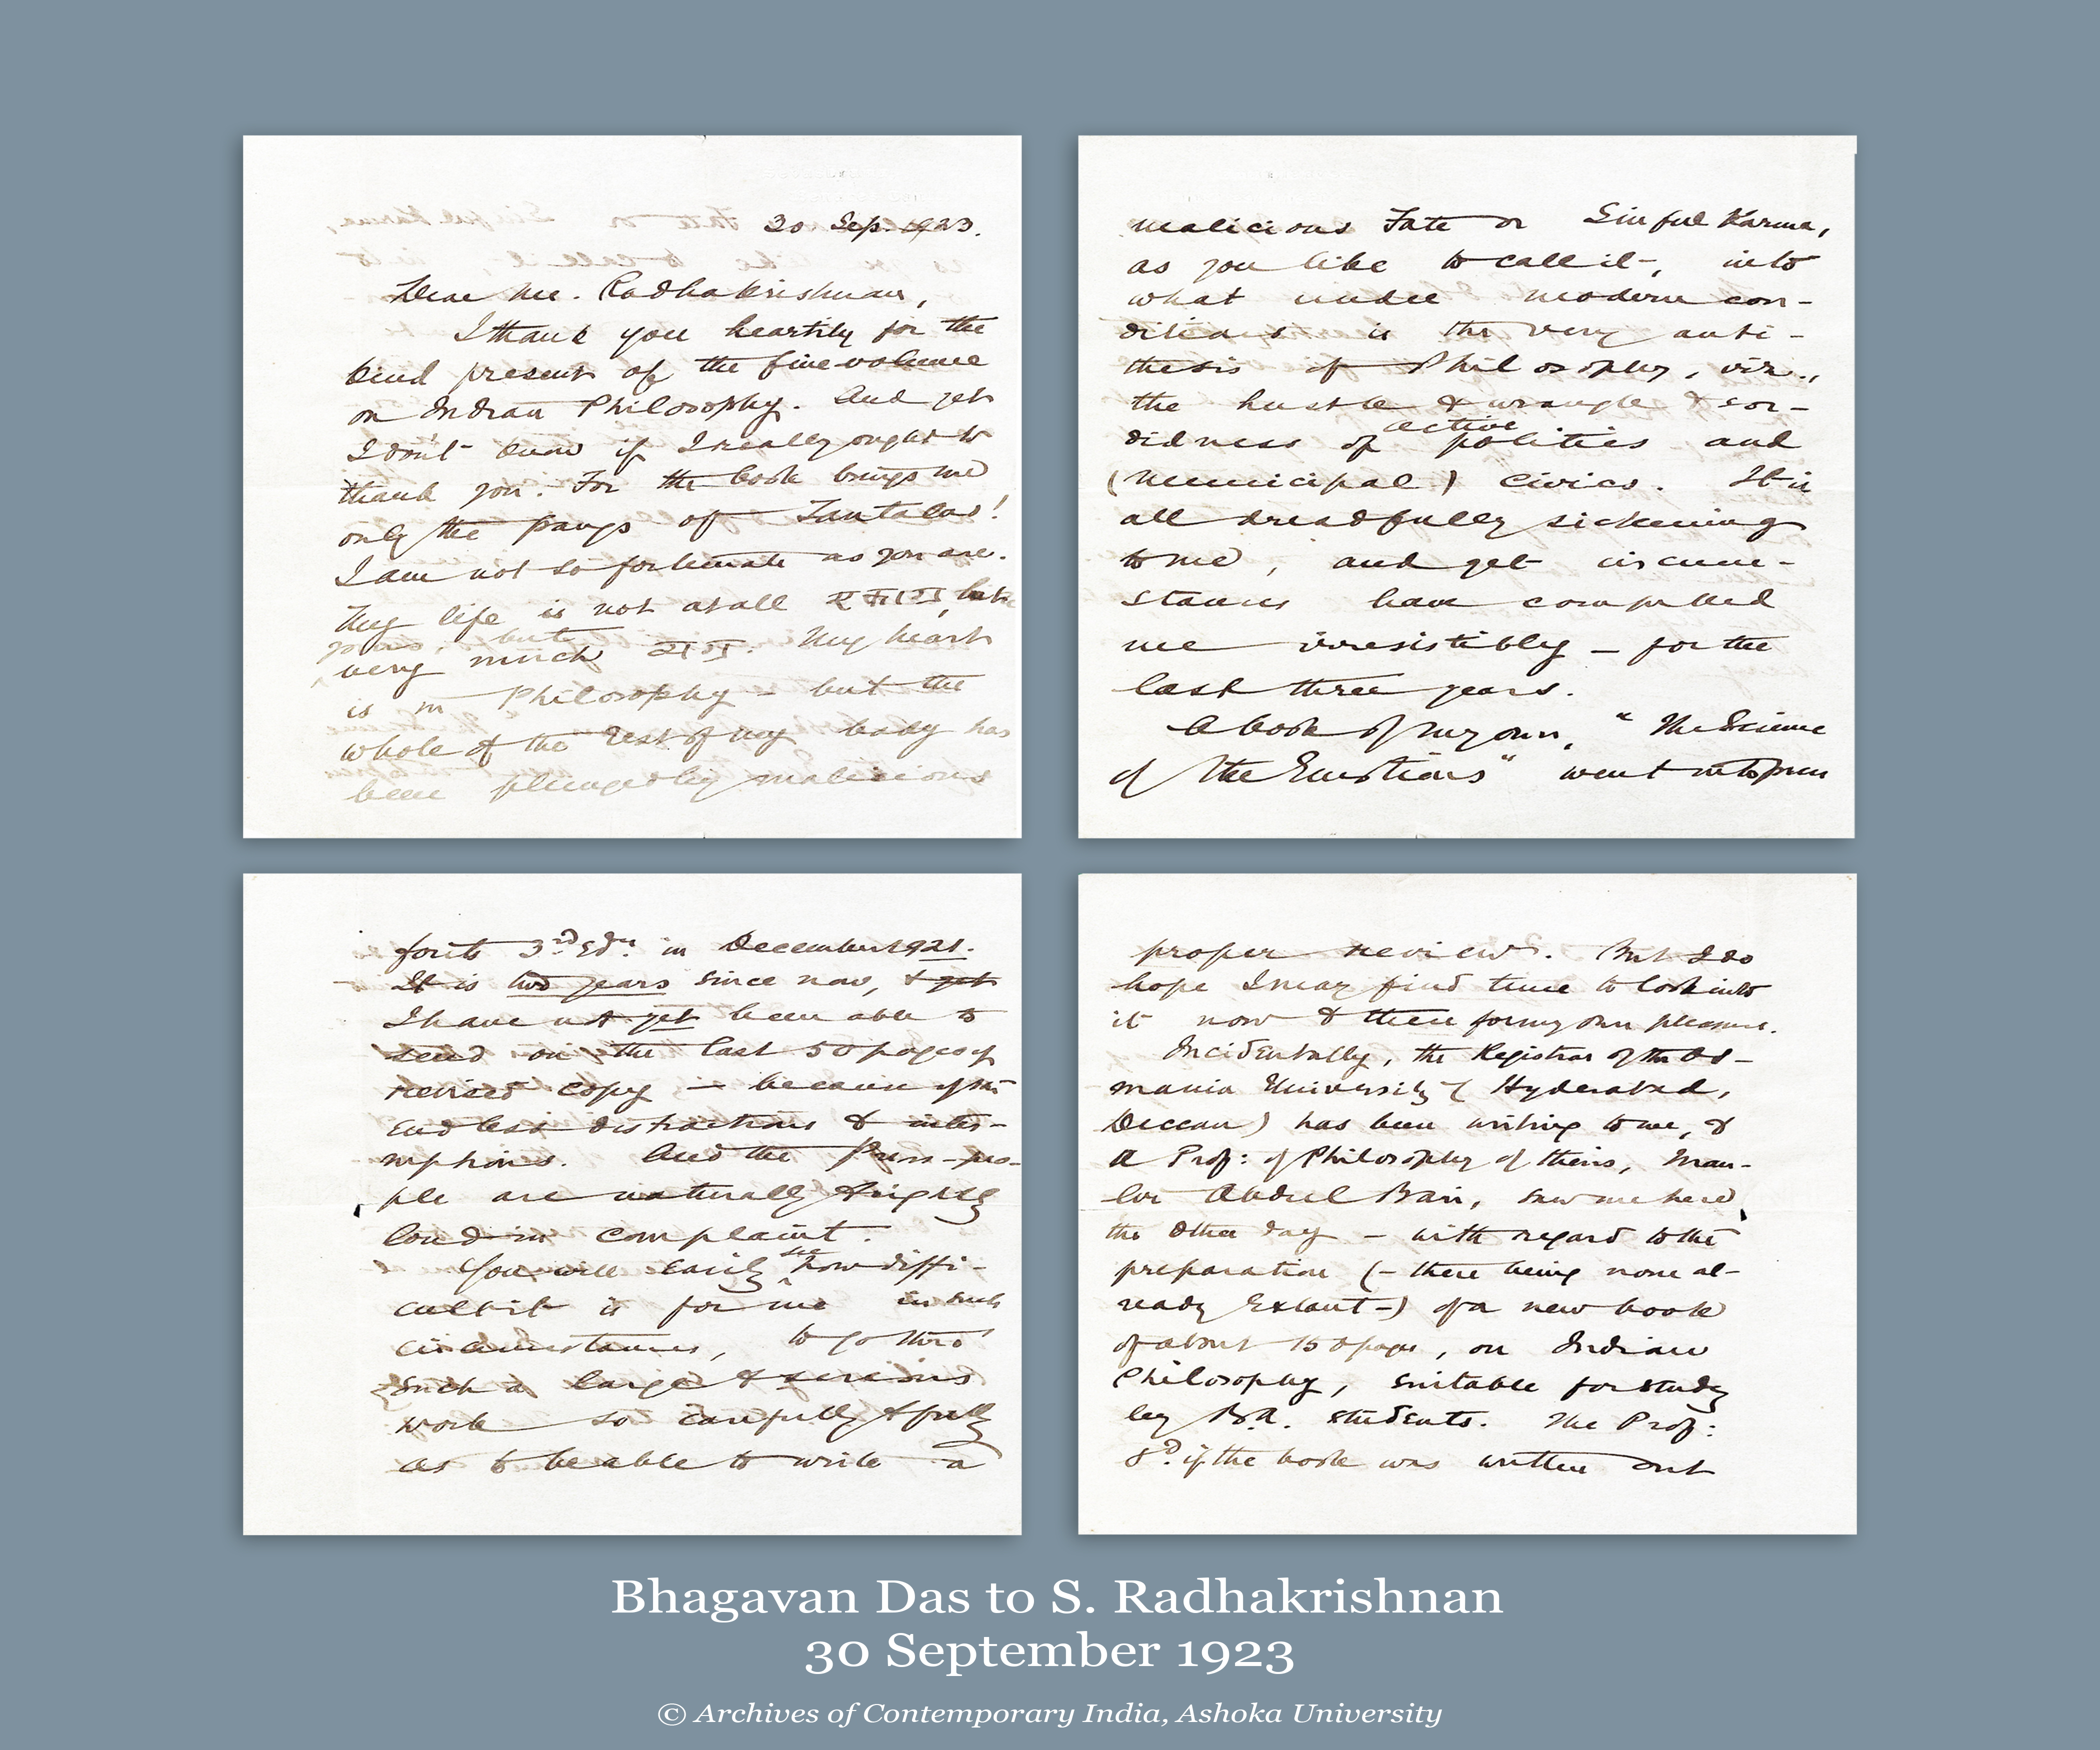 30 Sep. 1923.
Dear Mr. Radhakrishnan,
I thank you heartily for the
kind present of the fine volume
on Indian Philosophy. And yet
I don't know if I really ought to
thank you. For the book brings me
only the pangs of Tantalus!
I am not so fortunate as you are.
My life is not at all like
yours, but
very much My heart
is in Philosophy – but the
whole of the rest of my body has
been plunged by malicious
malicious Fate or Sinful Karma,
as you like to call it, into
what under modern con-
ditions is the very anti-
thesis of Philosophy, viz.,
the hustle & wrangle & sor-
didness of active politics and
(municipal) civics. It is
all dreadfully sickening
to me, and yet circum-
stances have compelled
me irresistibly – for the
last three years.
A book of my own, "The Science
of the Emotions" went into press
for its 3rd Edn. in December 1921.
It is two years since now, & yet
I have not yet been able to
send on the last 50 pages of
revised copy – because of the
endless distractions & inter-
ruptions. And the Press-peo-
ple are naturally & rightly
loud in complaint.
You will easily see how diffi-
cult it is for me in such
circumstances, to go thro'
such a large & serious
work so carefully & fully
as to be able to write a
proper review. But I do
hope I may find time to look into
it now & then for my own pleasure.
Incidentally, the Registrar of the Os-
mania University (Hyderabad,
Deccan) has been writing to me, &
a Prof: of Philosophy of theirs, Maul-
vi Abdul Bari, saw me here
the other day – with regard to the
preparation (– there being none al-
ready extant –) of a new book
of about 150 pages, on Indian
Philosophy, suitable for study
by B.A. students. The Prof:
sd. if the book was written out
Bhagavan Das to S. Radhakrishnan
30 September 1923
© Archives of Contemporary India, Ashoka University